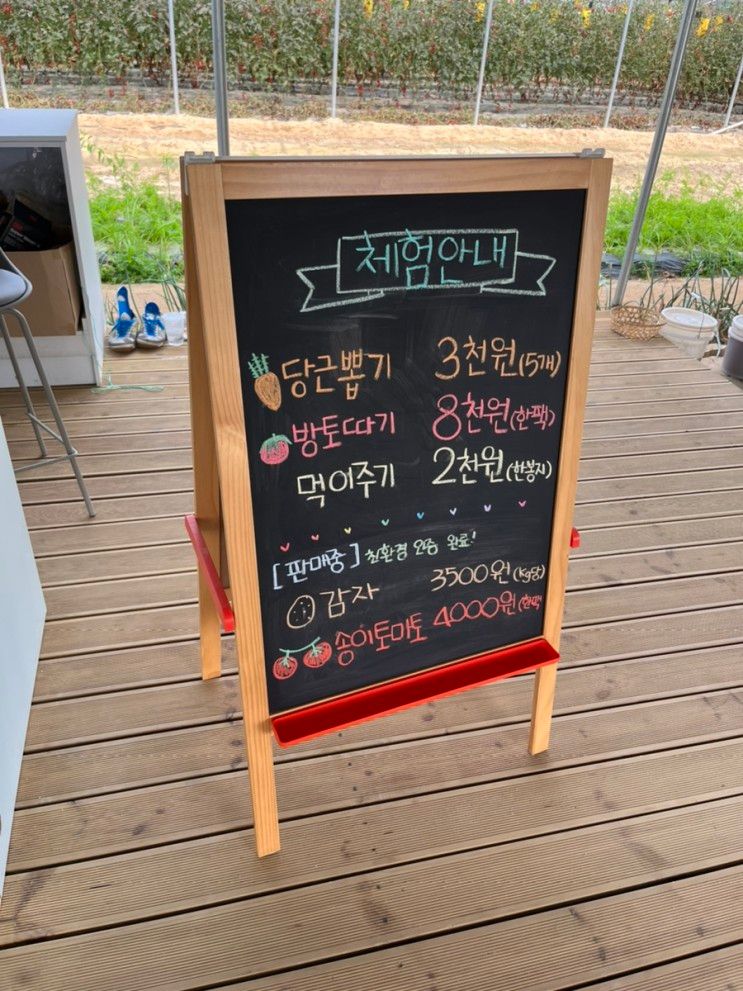 체험안내
당근뽑기 3천원(5개)
방토따기 8천원(한팩)
먹이주기 2천원(한봉지)
[판매중] 친환경 인증 완료!
감자 3500원(kg당)
송이토마토 4000원(한팩